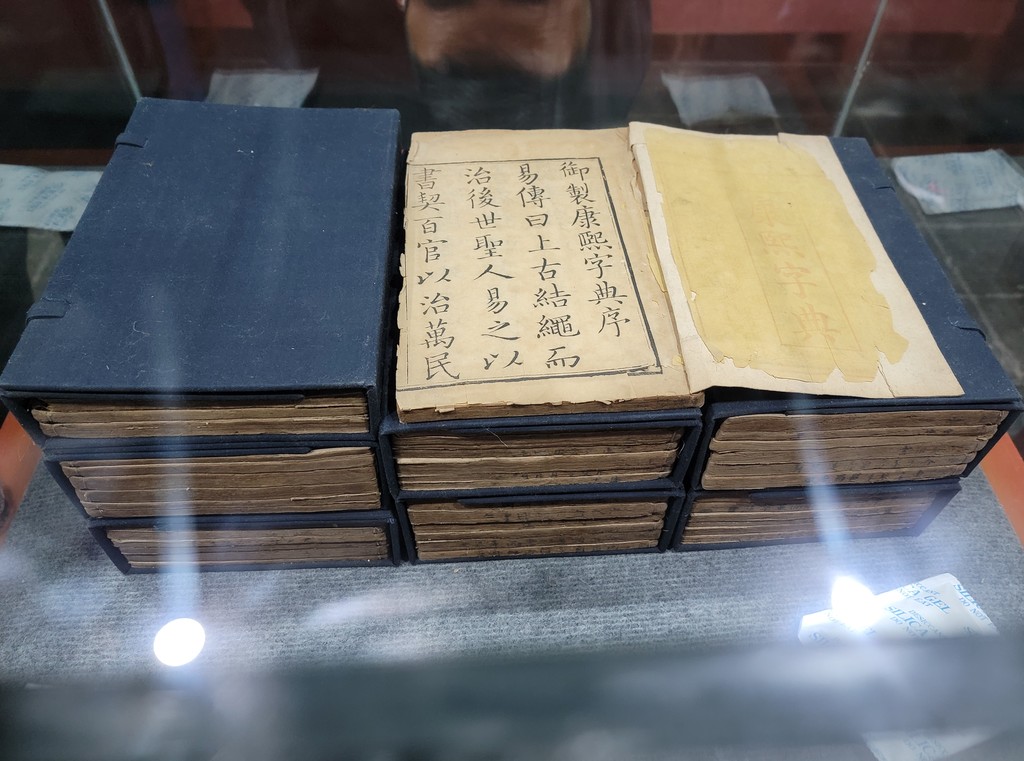 御製康熙字典序
易傳曰上古結繩而
治後世聖人易之以
書契百官以治萬民
熙字典
SILICA GEL